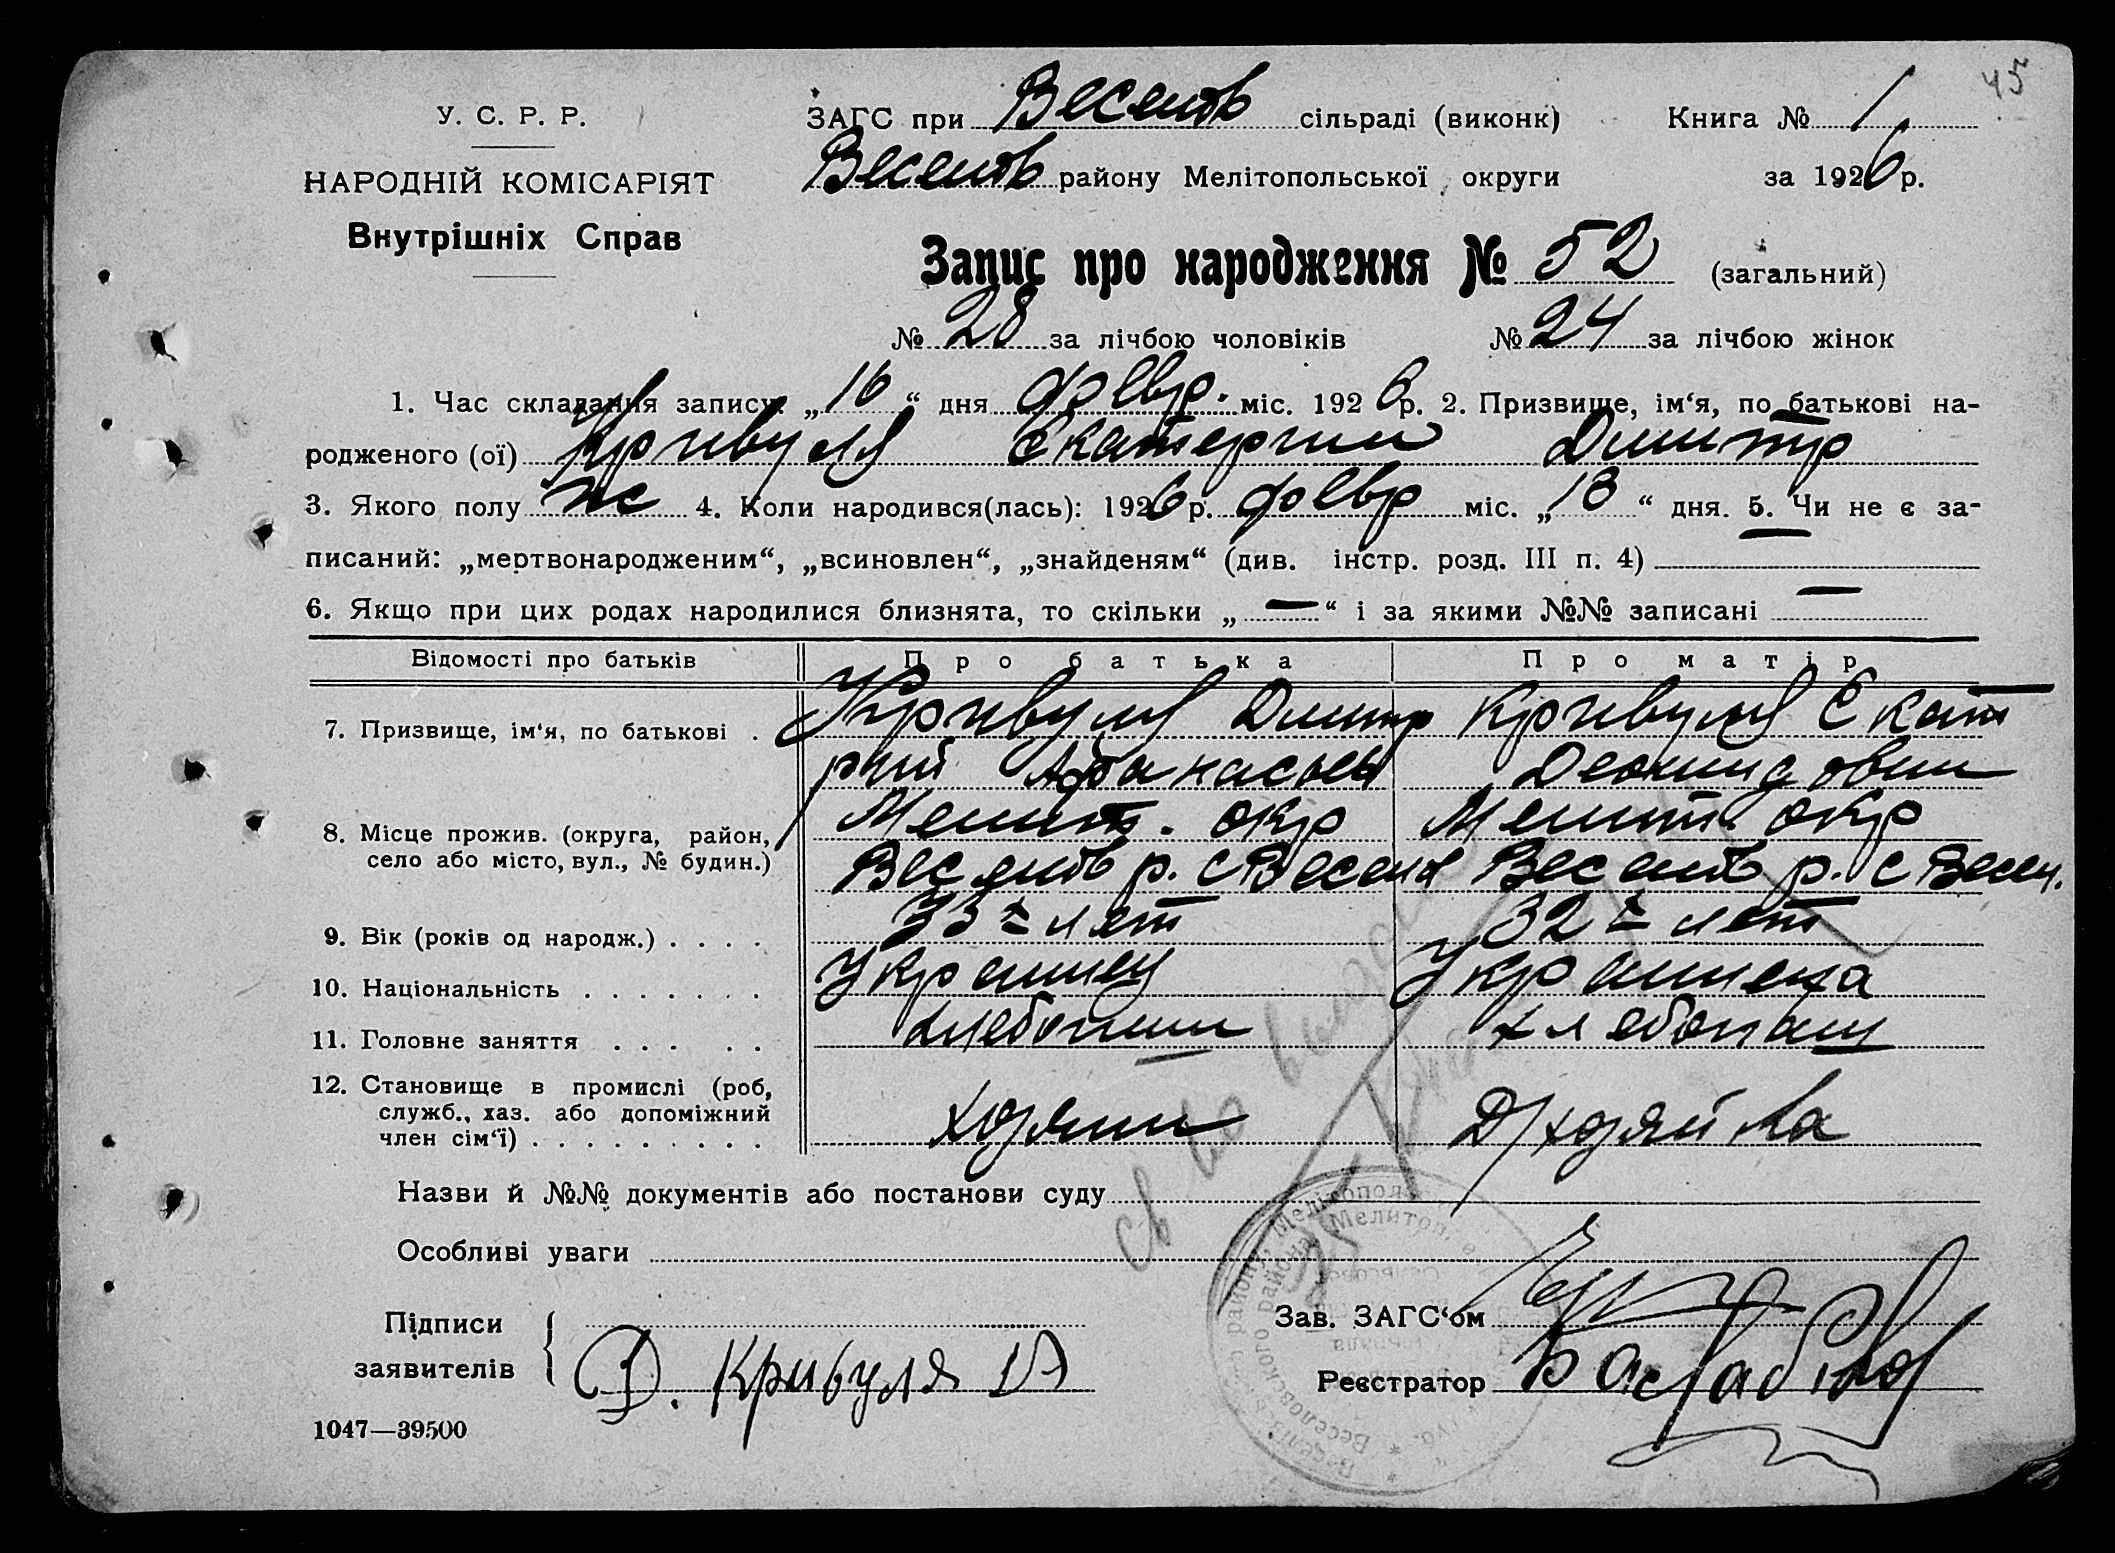 45
У. С. Р. Р.
НАРОДНІЙ КОМІСАРІЯТ
Внутрішніх Справ
ЗАГС при Веселів сільраді (виконк) Книга № 1
Веселів району Мелітопольської округи за 1926 р.
Запис про народження № 52 (загальний)
№ 28 за лічбою чоловіків № 24 за лічбою жінок
1. Час складання запису: „16“ дня февр. міс. 1926 р. 2. Призвище, ім‘я, по батькові на-
родженого (ої) Кривуля Екатерин Дмитр
3. Якого полу ж 4. Коли народився(лась): 1926 р. февр міс. „13“ дня. 5. Чи не є за-
писаний: „мертвонародженим“, „всиновлен“, „знайденям“ (див. інстр. розд. III п. 4) —
6. Якщо при цих родах народилися близнята, то скільки „—“ і за якими №№ записані —
Відомості про батьків Про батька Про матір
7. Призвище, ім‘я, по батькові . Кривуля Дмит Кривуля Екат
рий Афанасьев
8. Місце прожив. (округа, район, Мелит. окр Мелит. окр
село або місто, вул., № будин.) Веселів р. с Весел Веселів р. с Весел.
9. Вік (років од народж.) . . . . 33 лет 32 лет
10. Національність . . . . . . . Украинец Украинека
11. Головне заняття . . . . . хлебопаш хлебопаш
12. Становище в промислі (роб,
служб., хаз. або допоміжний
член сім‘ї) . . . . . . . . . хозяин Д/хозяйка
Назви й №№ документів або постанови суду
Особливі уваги
Підписи
заявителів Д. Кривуля
Зав. ЗАГС‘ом
Реєстратор
1047—39500